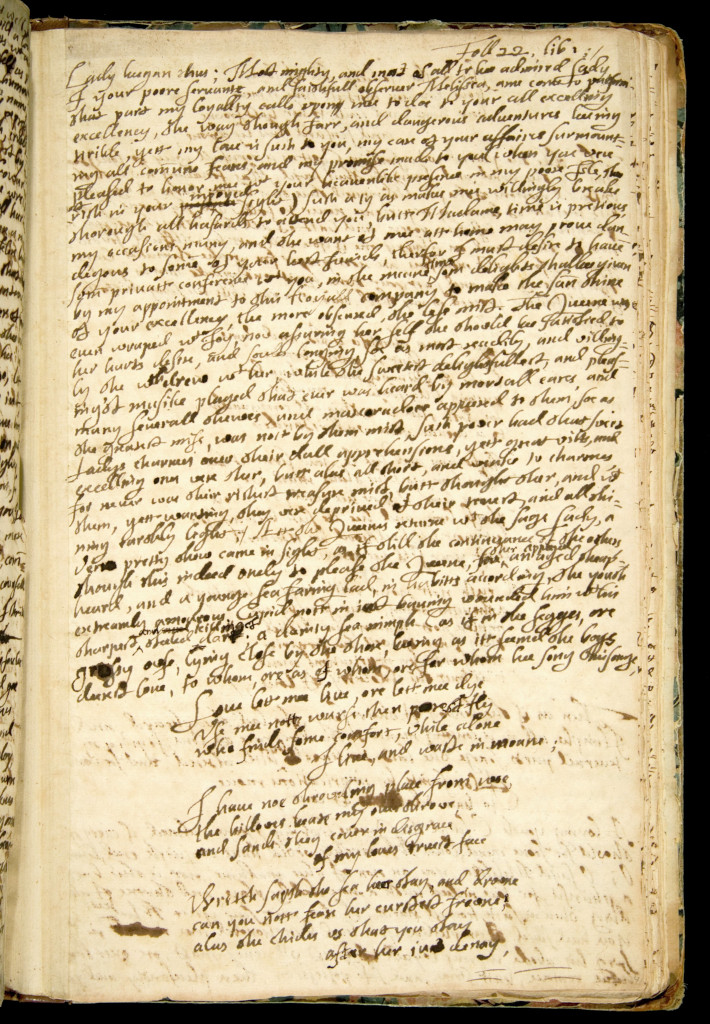 Foll 22. lib: 1
Lady began thus; Most mighty, and most of all to bee admired Lady
I your poore servante, and faithfull observer Melissea, ame come to performe
that part my loyallty calls upon mee to doe to your all excelling
excellency, the way though farr, and dangerous adventures beeing
terible, yett my love is such to you, my care of your affaires surmount-
ing all comune feares, and my promise made to you when you were
pleased to honor mee wt your heavenlike presence in my poore Isle, the
rich in your injoyed sight) such as make mee willingly breake
thorough all hasards to attend you, butt Madame, time is pretious
my occasions many, and the want of mee att home may prove dan
gerous to some of your best freinds, therfor I must desire to have
som private conference wt you, in the meane time som delights shallbee given
by my appointment to this roiall company to make the sun shine
of your excellency, the more obscured, the less mist, The Queene was
even wraped wt joy now assuring her self she should bee sattisfied to
her harts desire, and soules longing, soe as most readily, and willing-
ly she wtdrew wt her while the sweetest delightfullest, and pleas-
ingst musike played that ever was heard by mortall eares, and
many severall shewes and maraculous apeered to them, soe as
the greatest miss, was nott by them mist, such power had that sweet
Ladys charmes over their dull aprehensions, yett great witts, and
excelling ones were ther, butt alas all short, and winde to charmes
for never was their richest treasure mist, butt thought ther, and wt
them, yett wanting, they were deprived of their truest and all shi-
ning earthly light; Att the Queenes returne wt the sage Lady, a
verie pretty show came in sight, as if still the continuance of the others
though this indeed onely to please the Queene, for ther apeered an aged sheap-
heard, and a younge sea faring lad, in habitts according, the youth
extreamly amorous, Cupid nott in jest having wounded him wt his
sharpest, and most killinge dart, a dainty sea nimph as if in the segges, ore
grassy ouse, lying close by the shore, beeing as itt seem'd the boys
dearest love, to whom, ore as of whom, ore for whom hee song this songe
Love lett mee live, ore lett mee dye
Use mee nott wurse then poorest fly
who finds some comfort, while alone
I live, and waste in moane;
I have noe shreuding place from woe
the billows beare my overthrowe,
and sands they cover in disgrace
of my loves truest face
Wretch sayth the sea bee stay, and drowne
can you nott fear her curstest frowne;
alas she chides us that you stay
after her just denay,